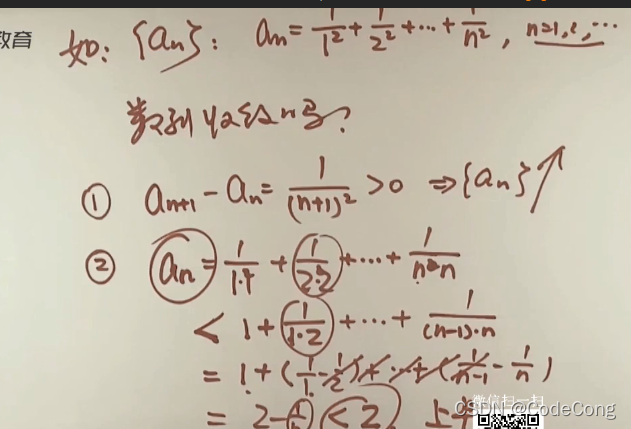 教育
如: {aₙ}: aₙ = 1/1² + 1/2² + ⋯ + 1/n², n=1,2,⋯
数列收敛吗?
① aₙ₊₁ - aₙ = 1/(n+1)² > 0 ⇒ {aₙ}↑
② aₙ = 1/1·1 + 1/2·2 + ⋯ + 1/n·n
< 1 + 1/1·2 + ⋯ + 1/(n-1)·n
= 1 + (1/1 - 1/2) + ⋯ + (1/n-1 - 1/n)
= 2 - 1/n < 2 上
微信扫一扫
CSDN @CodeCong